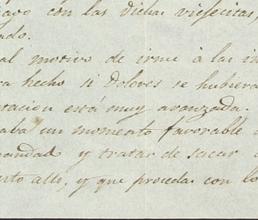 con las dichas viejecitas,
al motivo de irme á las in
ra hecho si Dolores se hubiera
tacion está muy avanzada.
aba un momento favorable
mandad y tratar de sacar
erto alli, y que proceda con lo